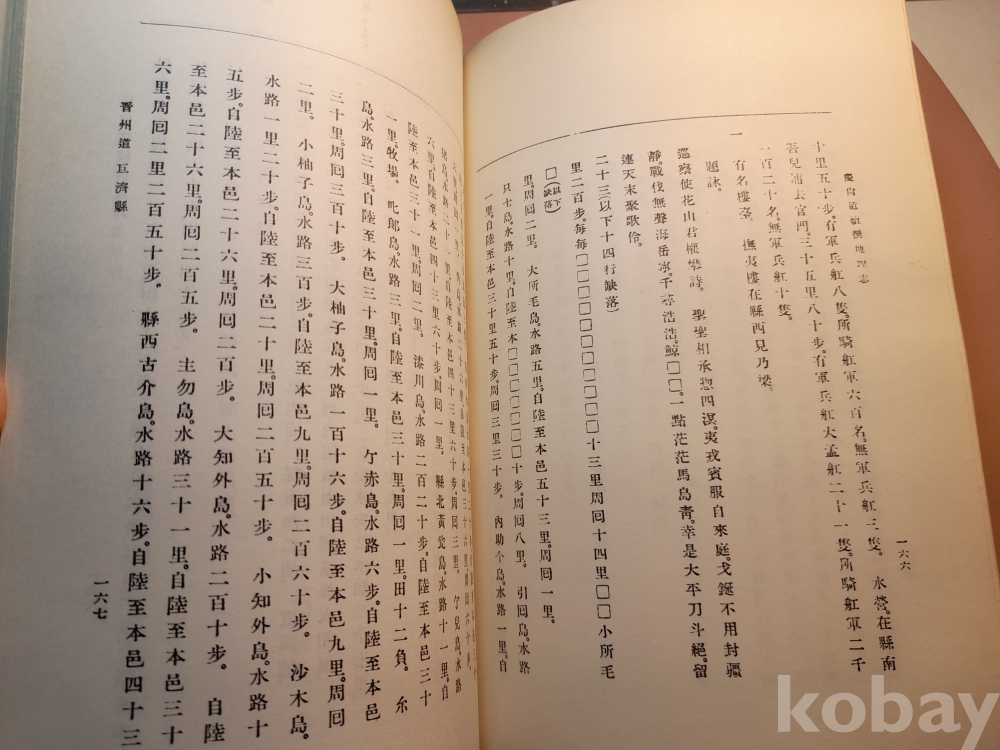 慶尙道續撰地理志
一六六
十里五十步。有軍兵舡八隻。所騎舡軍六百名。無軍兵舡三隻。 水營。在縣南
吾兒浦長官門。三十五里八十步。有軍兵舡大孟舡二十一隻。所騎舡軍二千
一百二十名。無軍兵舡十隻。
一 有名樓臺。 撫夷樓在縣西見乃梁。
題詠。 聖聖相承惣四溟。夷戎賓服自來庭。戈鋋不用封疆
巡察使花山君權攀詩。
靜。戰伐無聲海岳寧。千尋浩浩。鯨□□。一點茫茫馬島靑。幸是大平刀斗絕。留
連天末聚歌伶。
二十三以下十四行缺落)
里二百步。每每□□□□□□□□□□十三里周囘十四里□□小所毛
□(以下缺落)
里。周囘二里。 大所毛島。水路五里。自陸至本邑五十三里。周囘一里。
只士島。水路十里。自陸至本□□□□□□十步。周囘八里。 引囘島。水路
一里。自陸至本邑五十里五十步。周囘三里三十步。 內助个島。水路一里。自
猪島。水路二十一里。自陸至本邑四十三里六十步。周囘三里。 亇兒島。水路
六里。自陸至本邑四十三里六十步。周囘一里。 縣北黃瓮島。水路十一里。自
陸至本邑三十一里。周囘二里。 漆川島。水路二百二十步。自陸至本邑三十
一里。牧場。 叱郎島。水路三里。自陸至本邑三十里。周囘一里。田十二負。 糸
島。水路三里。自陸至本邑三十里。周囘一里。 亇赤島。水路六步。自陸至本邑
三十里。周囘三百十步。 大柚子島。水路一百十六步。自陸至本邑九里。周囘
二里。 小柚子島。水路三百步。自陸至本邑九里。周囘二百六十步。 沙木島。
水路一里二十步。自陸至本邑二十里。周囘二百五十步。 小知外島。水路十
五步。自陸至本邑二十六里。周囘二百步。 大知外島。水路二百十步。 自陸
至本邑二十六里。周囘二百五步。 主勿島。水路三十一里。自陸至本邑三十
六里。周囘二里二百五十步。 縣西古介島。水路十六步。自陸至本邑四十三
晋州道 巨濟縣
一六七
kobay